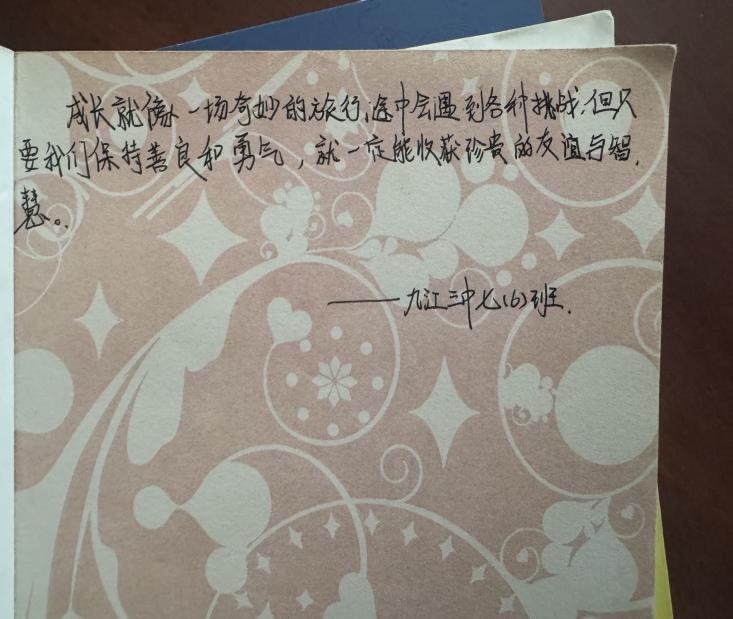 成长就像一场奇妙的旅行,途中会遇到各种挑战,但只
要我们保持善良和勇气，就一定能收获珍贵的友谊与智
慧。
——九江三中七(6)班.